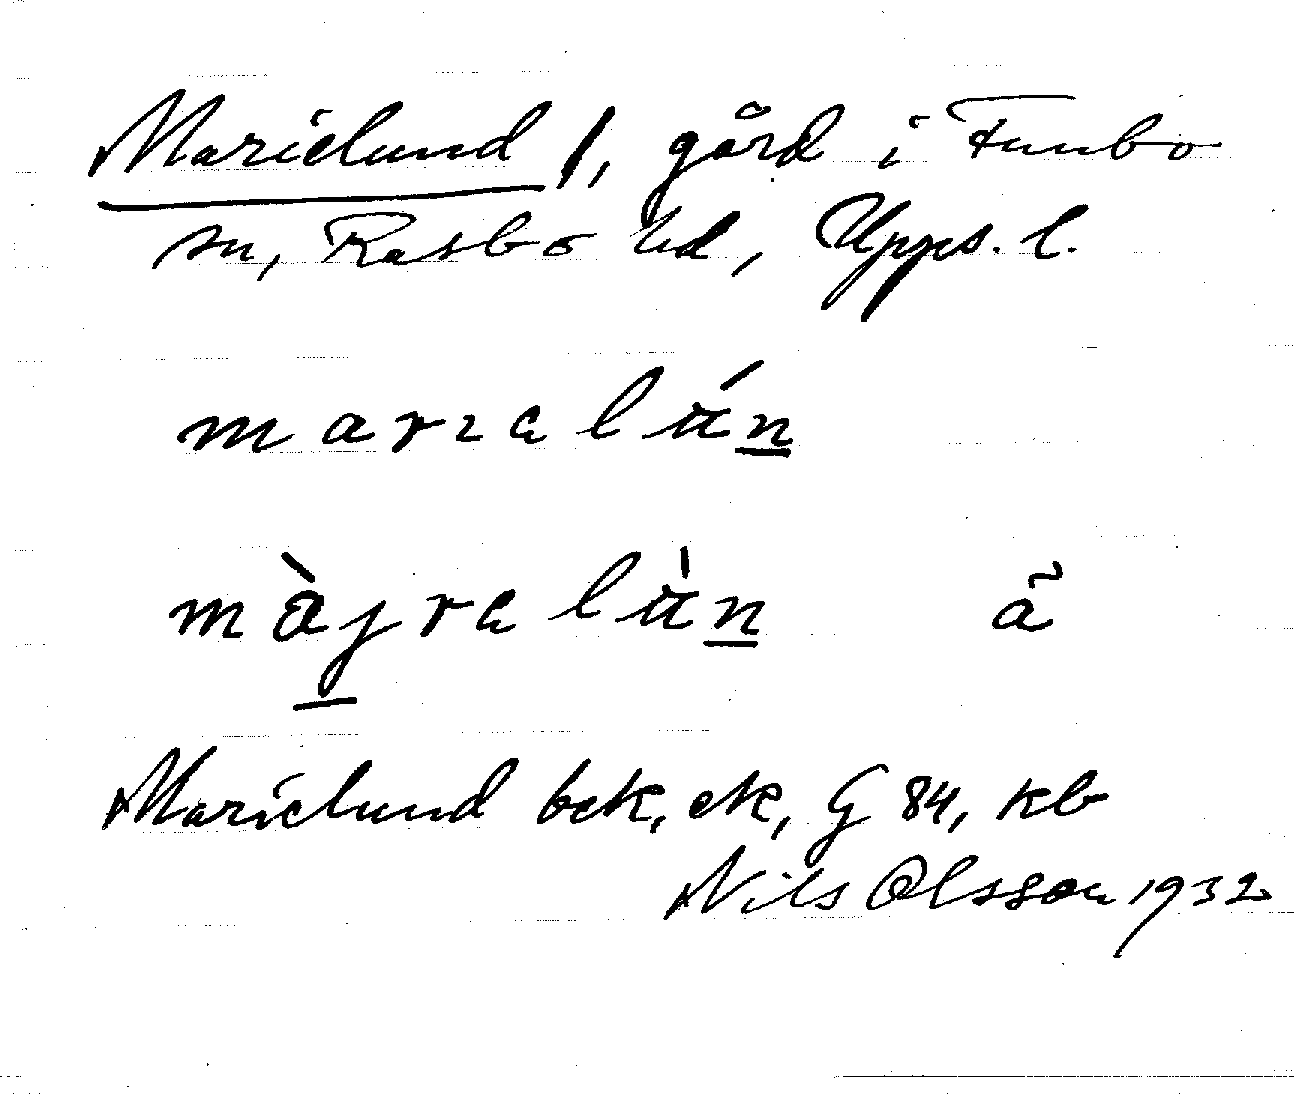 Marielund 1, gård i Funbo
sn, Rasbo hd, Upps. l.
marıɐlu̇́n
màjrɐlu̇̀n ã
Marielund bek, ek, G 84, kb
Nils Olsson 1932